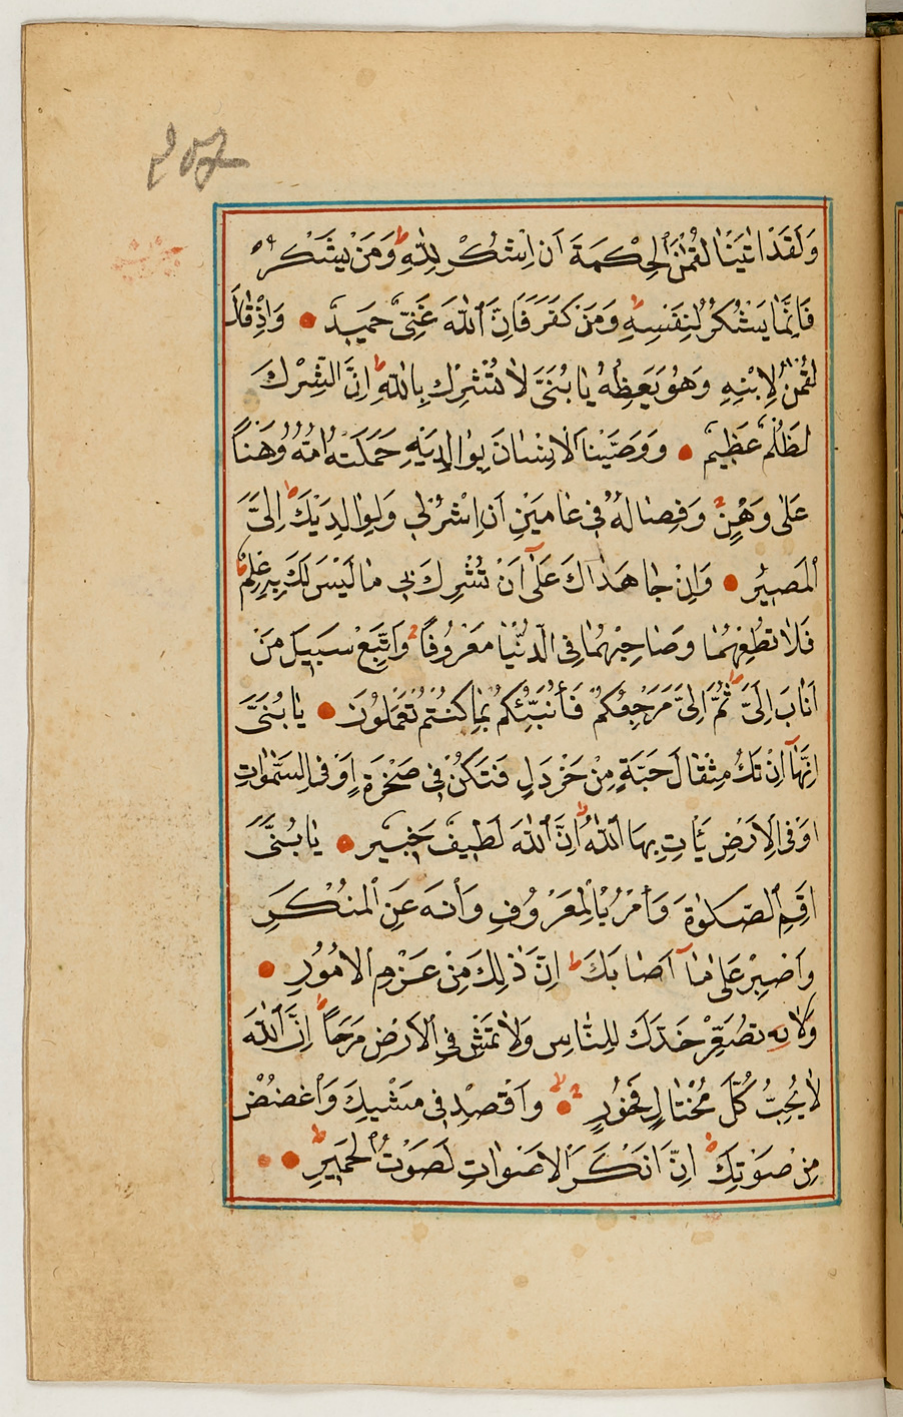 وَلَقَدْ اٰتَيْنَا لُقْمٰنَ الْحِكْمَةَ اَنِ اشْكُرْ لِلّٰهِ ط وَمَنْ يَشْكُرْ
فَاِنَّمَا يَشْكُرُ لِنَفْسِهِ ط وَمَنْ كَفَرَ فَاِنَّ اللّٰهَ غَنِىٌّ حَمِيدٌ وَاِذْ قَالَ
لُقْمٰنُ لِابْنِهِ وَهُوَ يَعِظُهُ يَا بُنَىَّ لَا تُشْرِكْ بِاللّٰهِ ط اِنَّ الشِّرْكَ
لَظُلْمٌ عَظِيمٌ وَوَصَّيْنَا الْاِنْسَانَ بِوَالِدَيْهِ حَمَلَتْهُ اُمُّهُ وَهْنًا
عَلٰى وَهْنٍ وَفِصَالُهُ فِى عَامَيْنِ اَنِ اشْكُرْ لِى وَلِوَالِدَيْكَ ط اِلَىَّ
الْمَصِيرُ وَاِنْ جَاهَدَاكَ عَلٰٓى اَنْ تُشْرِكَ بِى مَا لَيْسَ لَكَ بِهِ عِلْمٌ
فَلَا تُطِعْهُمَا وَصَاحِبْهُمَا فِى الدُّنْيَا مَعْرُوفًا وَاتَّبِعْ سَبِيلَ مَنْ
اَنَابَ اِلَىَّ ط ثُمَّ اِلَىَّ مَرْجِعُكُمْ فَأُنَبِّئُكُمْ بِمَا كُنْتُمْ تَعْمَلُونَ يَا بُنَىَّ
اِنَّهَٓا اِنْ تَكُ مِثْقَالَ حَبَّةٍ مِنْ خَرْدَلٍ فَتَكُنْ فِى صَخْرَةٍ اَوْ فِى السَّمٰوَاتِ
اَوْ فِى الْاَرْضِ يَأْتِ بِهَا اللّٰهُ ط اِنَّ اللّٰهَ لَطِيفٌ خَبِيرٌ يَا بُنَىَّ
اَقِمِ الصَّلٰوةَ وَأْمُرْ بِالْمَعْرُوفِ وَانْهَ عَنِ الْمُنْكَرِ
وَاصْبِرْ عَلٰى مَٓا اَصَابَكَ ط اِنَّ ذٰلِكَ مِنْ عَزْمِ الْاُمُورِ
وَلَا تُصَعِّرْ خَدَّكَ لِلنَّاسِ وَلَا تَمْشِ فِى الْاَرْضِ مَرَحًا ط اِنَّ اللّٰهَ
لَا يُحِبُّ كُلَّ مُخْتَالٍ فَخُورٍ وَاقْصِدْ فِى مَشْيِكَ وَاغْضُضْ
مِنْ صَوْتِكَ ط اِنَّ اَنْكَرَ الْاَصْوَاتِ لَصَوْتُ الْحَمِيرِ ط